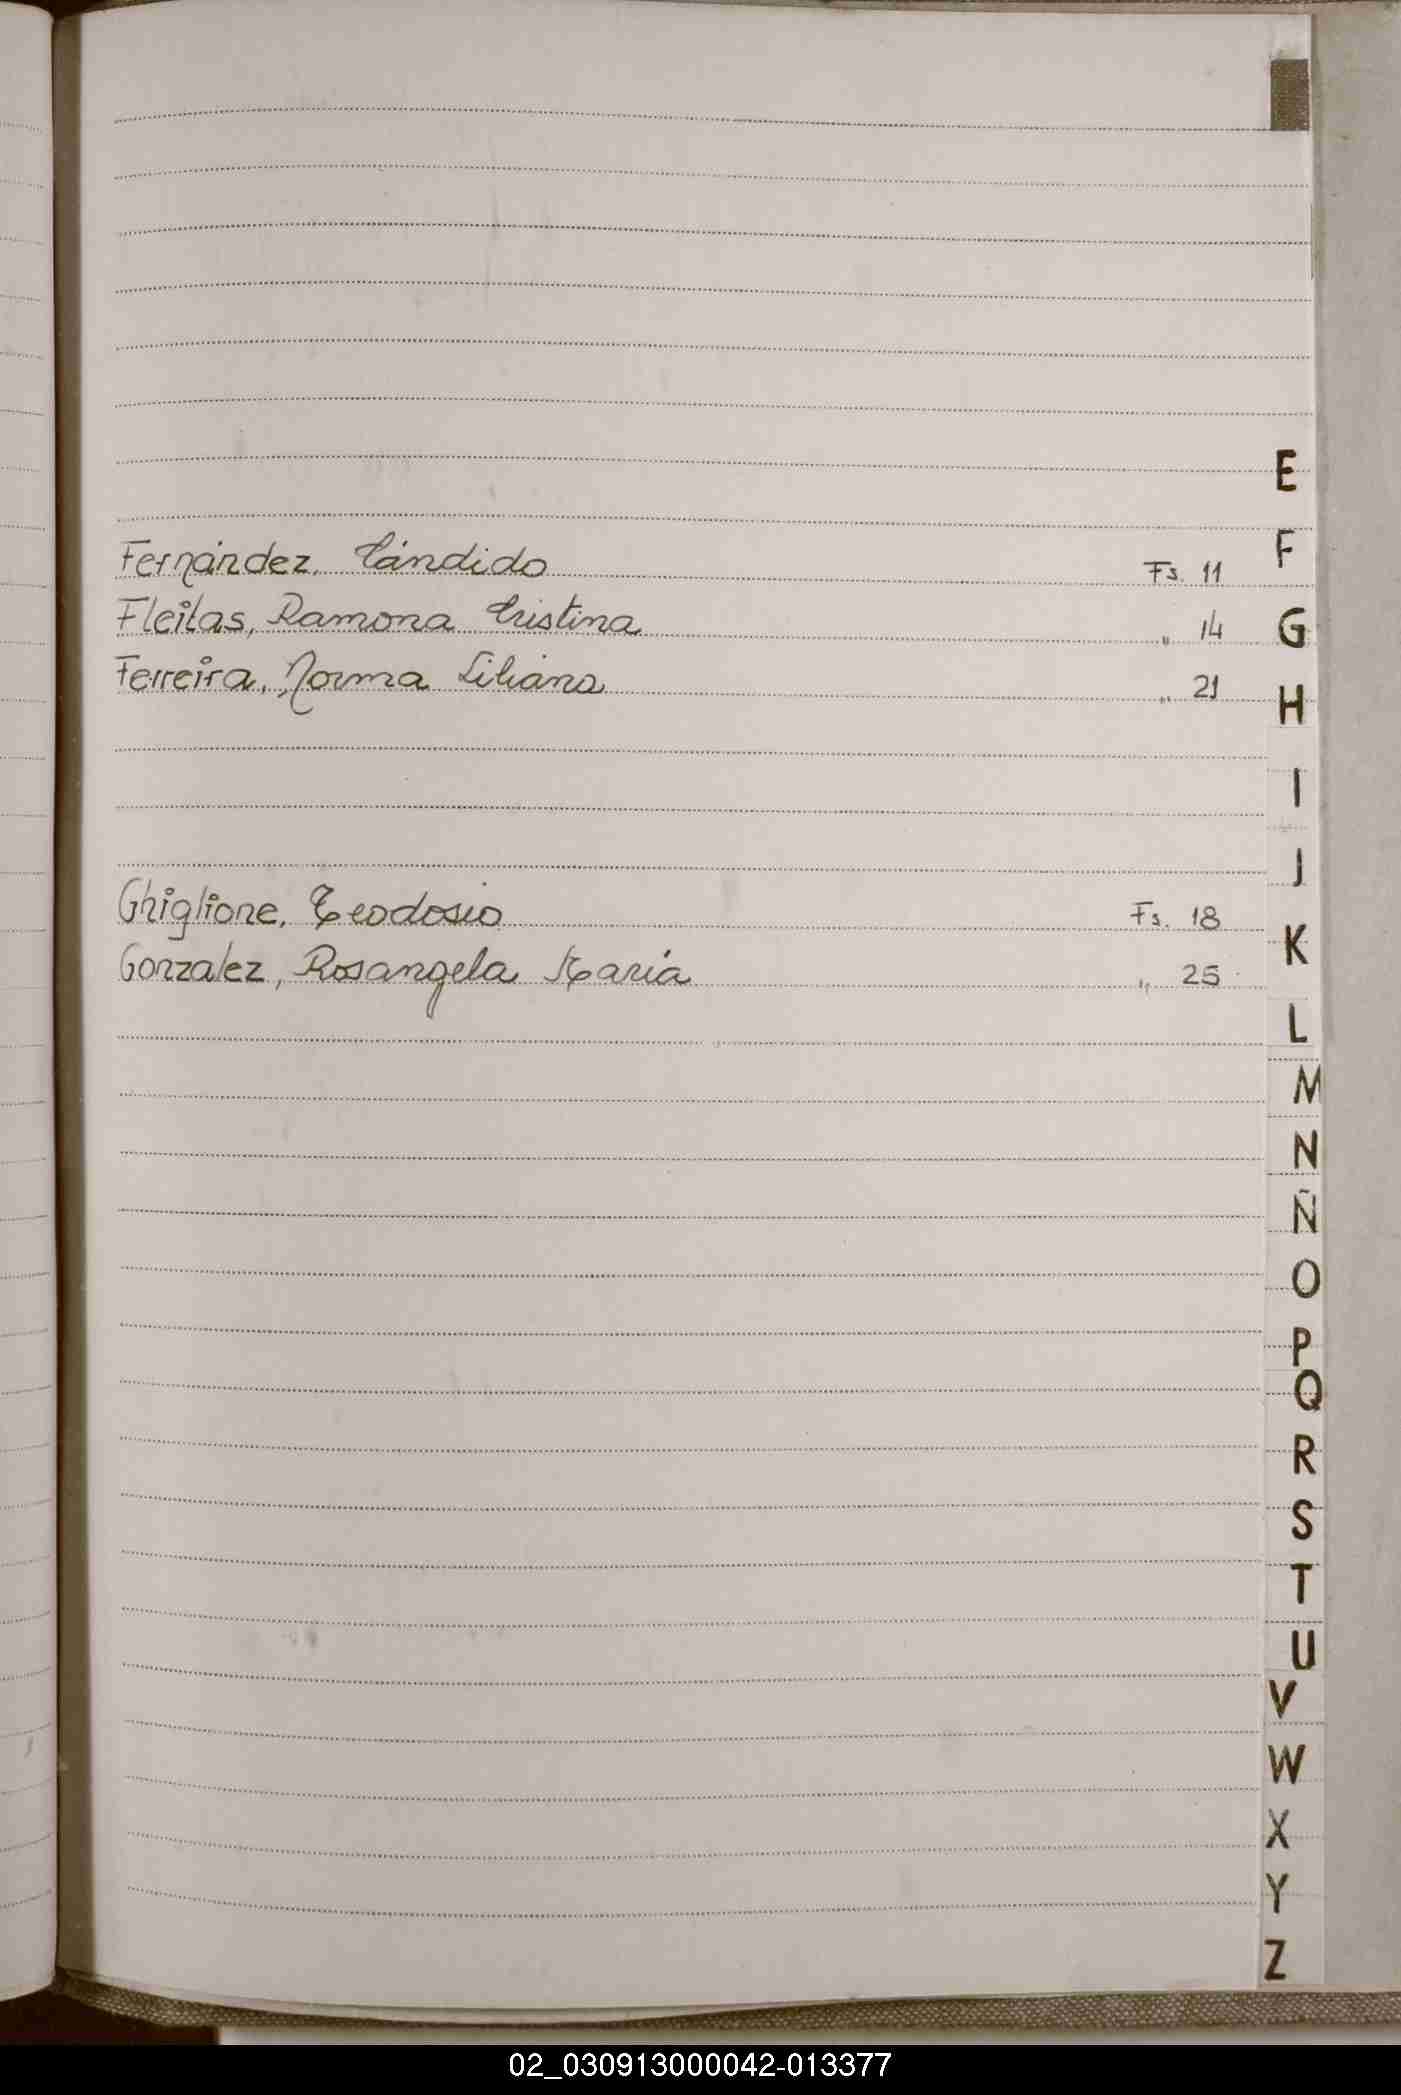 E
Fernández, Cándido Fs. 11
F
Fleitas, Ramona Cristina " 14
G
Ferreira, Norma Liliana " 21
H
I
J
Ghiglione, Teodosio Fs. 18
K
Gonzalez, Rosangela María " 25
L
M
N
Ñ
O
P
Q
R
S
T
U
V
W
X
Y
Z
02_030913000042-013377